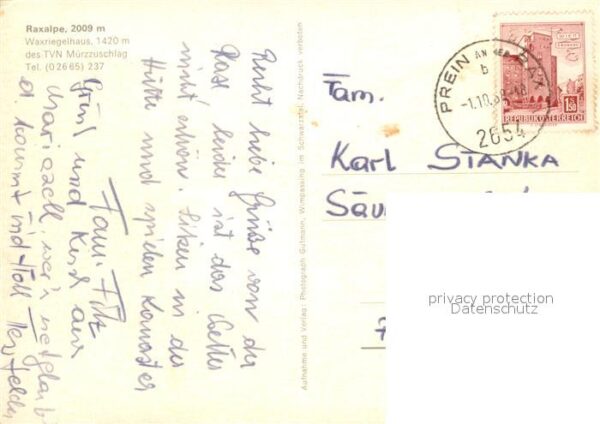 Raxalpe, 2009 m
Waxriegelhaus, 1420 m
des TVN Mürzzuschlag
Tel. (0 26 65) 237
Recht liebe Grüße von der
Rax leider ist das Wetter
nicht schön. Sitzen in der
Hütte und spielen Kanaster
Fam. Fitz
Gruß und Kuss aus
Mariazell, wer's net glaubt
d. kommt
Aufnahme und Verlag: Photograph Gutmann, Wimpassing im Schwarzatal, Nachdruck verboten
PREIN AN DER RAX
b
-1.10.69-18
2654
WIEN
1.50
REPUBLIK ÖSTERREICH
Fam.
Karl STANKA
privacy protection
Datenschutz